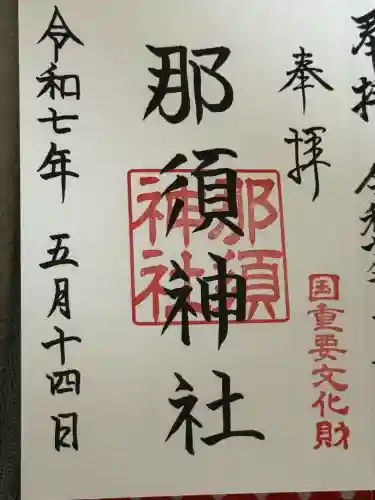 奉拝
国重要文化財
那須神社
那須神社
令和七年 五月十四日